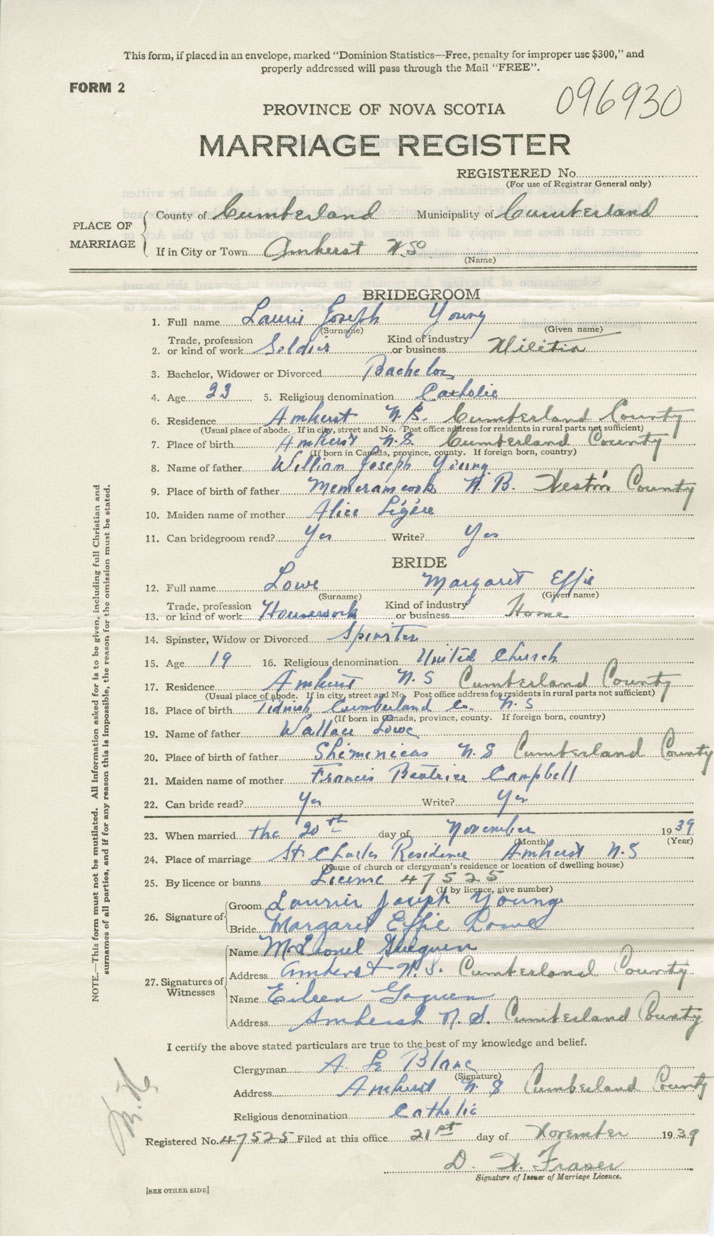 This form, if placed in an envelope, marked "Dominion Statistics—Free, penalty for improper use $300," and
properly addressed will pass through the Mail "FREE".
FORM 2
096930
PROVINCE OF NOVA SCOTIA
MARRIAGE REGISTER
REGISTERED No.
(For use of Registrar General only)
PLACE OF MARRIAGE
County of Cumberland Municipality of Cumberland
If in City or Town Amherst N.S.
(Name)
BRIDEGROOM
1. Full name Laurie Joseph Young
(Surname) (Given name)
2. Trade, profession or kind of work Soldier Kind of industry or business Militia
3. Bachelor, Widower or Divorced Bachelor
4. Age 23 5. Religious denomination Catholic
6. Residence Amherst N.S. Cumberland County
(Usual place of abode. If in city, street and No. Post office address for residents in rural parts not sufficient)
7. Place of birth Amherst N.S. Cumberland County
(If born in Canada, province, county. If foreign born, country)
8. Name of father William Joseph Young
9. Place of birth of father Memramcook N.B. County
10. Maiden name of mother Alice Légère
11. Can bridegroom read? Yes Write? Yes
BRIDE
12. Full name Lowe Margaret Effie
(Surname) (Given name)
13. Trade, profession or kind of work Housework Kind of industry or business Home
14. Spinster, Widow or Divorced Spinster
15. Age 19 16. Religious denomination United Church
17. Residence Amherst N.S Cumberland County
(Usual place of abode. If in city, street and No. Post office address for residents in rural parts not sufficient)
18. Place of birth Tidnish Cumberland Co. N.S
(If born in Canada, province, county. If foreign born, country)
19. Name of father Wallace Lowe
20. Place of birth of father N.S Cumberland County
21. Maiden name of mother Francis Beatrice Campbell
22. Can bride read? Yes Write? Yes
23. When married the 20th day of November 1939
(Month) (Year)
24. Place of marriage St. Charles Residence Amherst N.S
(Name of church or clergyman's residence or location of dwelling house)
25. By licence or banns License 47525
(If by licence, give number)
26. Signature of
Groom Laurier Joseph Young
Bride Margaret Effie Lowe
27. Signatures of Witnesses
Name Lionel
Address Amherst N.S. Cumberland County
Name Eileen
Address Amherst N.S. Cumberland County
I certify the above stated particulars are true to the best of my knowledge and belief.
Clergyman A. Le Blanc
(Signature)
Address Amherst N.S Cumberland County
Religious denomination Catholic
Registered No. 47525 Filed at this office 21st day of November 1939
Fraser
Signature of Issuer of Marriage Licence.
[SEE OTHER SIDE]
NOTE.—This form must not be mutilated. All Information asked for is to be given, including full Christian and
surnames of all parties, and if for any reason this is impossible, the reason for the omission must be stated.